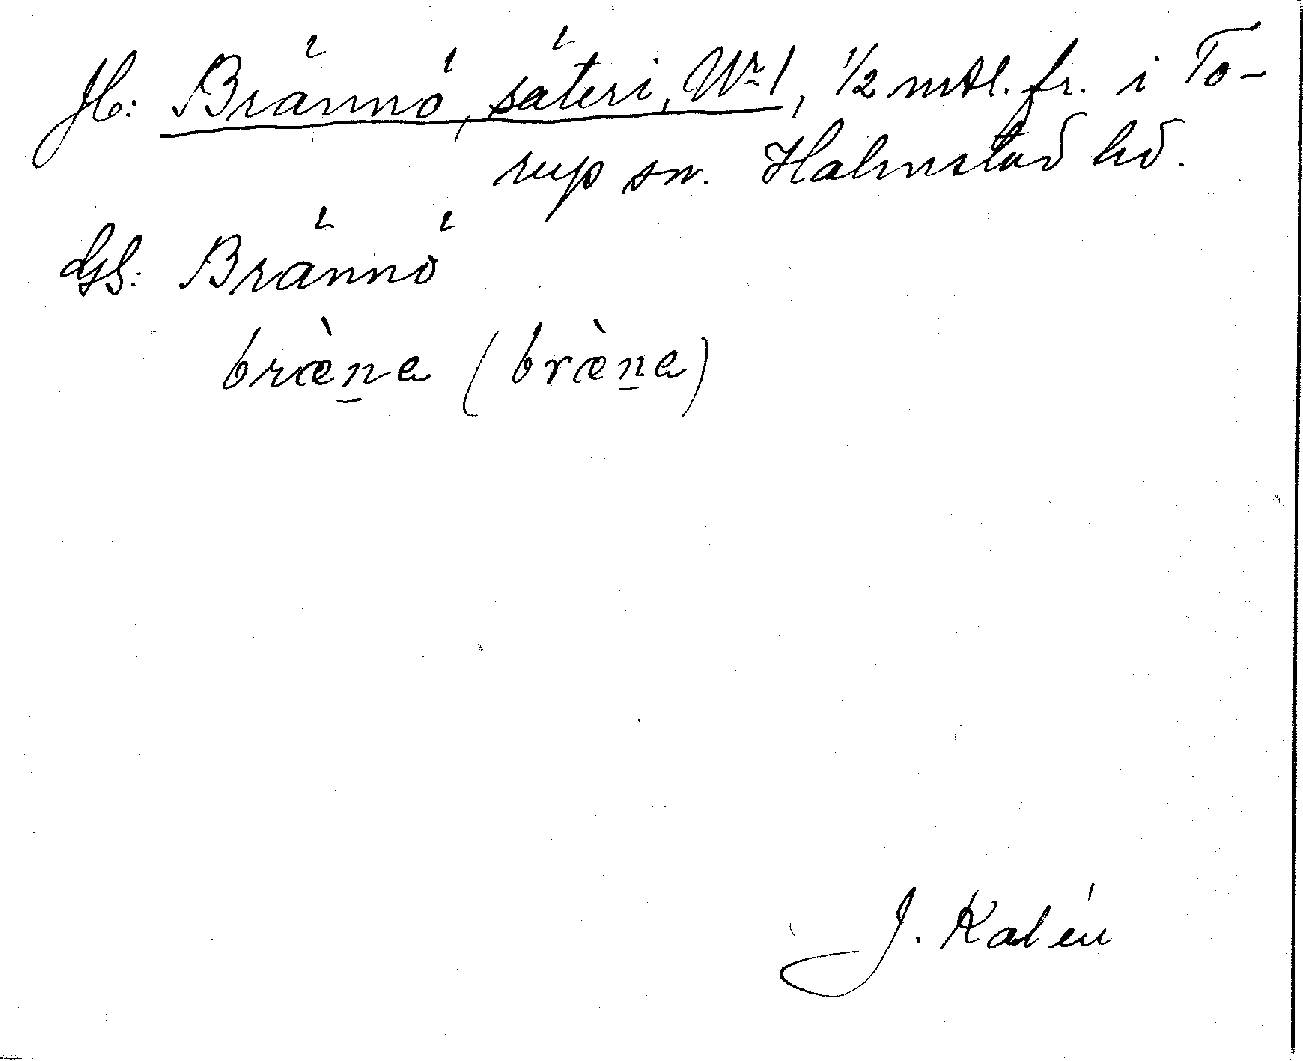 Jb: Brännö, säteri, Nr 1, 1/2 mtl. fr. i To-
rup sn. Halmstad hd.
GS: Brännö
bræ̀n̠a (bræ̀n̠a)
J. Kalén